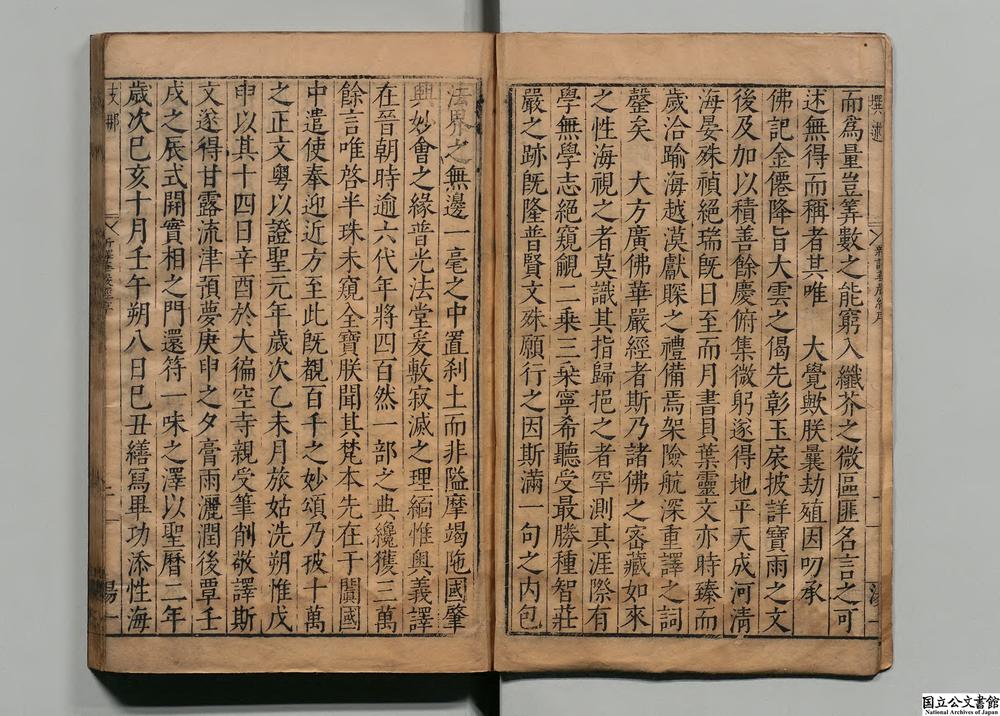 撰述
而爲量豈筭數之能窮入纖芥之微區匪名言之可
述無得而稱者其唯 大覺歟朕曩劫殖因叨承
佛記金僊降旨大雲之偈先彰玉扆披詳寶雨之文
後及加以積善餘慶俯集微躬遂得地平天成河清
海晏殊禎絕瑞既日至而月書貝葉靈文亦時臻而
歲洽踰海越漠獻賝之禮備焉架險航深重譯之詞
罄矣 大方廣佛華嚴經者斯乃諸佛之密藏如來
之性海視之者莫識其指歸挹之者罕測其涯際有
學無學志絕窺覦二乘三乘寧希聽受最勝種智莊
嚴之跡既隆普賢文殊願行之因斯滿一句之內包
法界之無邊一毫之中置刹土而非隘摩竭陁國肇
興妙會之緣普光法堂爰敷寂滅之理緬惟奧義譯
在晉朝時逾六代年將四百然一部之典纔獲三萬
餘言唯啓半珠未窺全寶朕聞其梵本先在于闐國
中遣使奉迎近方至此既覩百千之妙頌乃披十萬
之正文粤以證聖元年歲次乙未月旅姑洗朔惟戊
申以其十四日辛酉於大徧空寺親受筆削敬譯斯
文遂得甘露流津預夢庚申之夕膏雨灑潤後覃壬
戌之辰式開實相之門還符一味之澤以聖曆二年
歲次己亥十月壬午朔八日己丑繕寫畢功添性海
支那
湯一
国立公文書館
National Archives of Japan